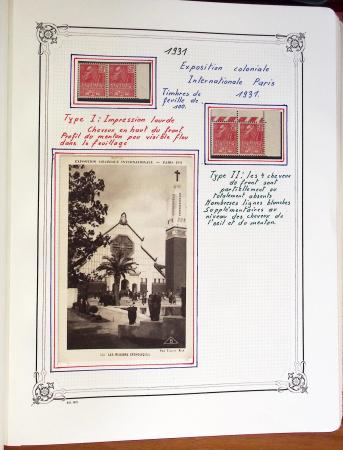 1931
Exposition coloniale
Internationale Paris
1931.
Timbres de
feuille de
100.
Type I: Impression lourde
Cheveux en haut du front,
Profil du menton peu visible flou
dans le feuillage
Type II: les 4 cheveux
de front sont
partiellement ou
totalement absents
Nombreuses lignes blanches
Supplémentaires au
niveau des cheveux de
l'oeil et du menton.
EXPOSITION COLONIALE INTERNATIONALE - PARIS 1931
LES MISSIONS CATHOLIQUES